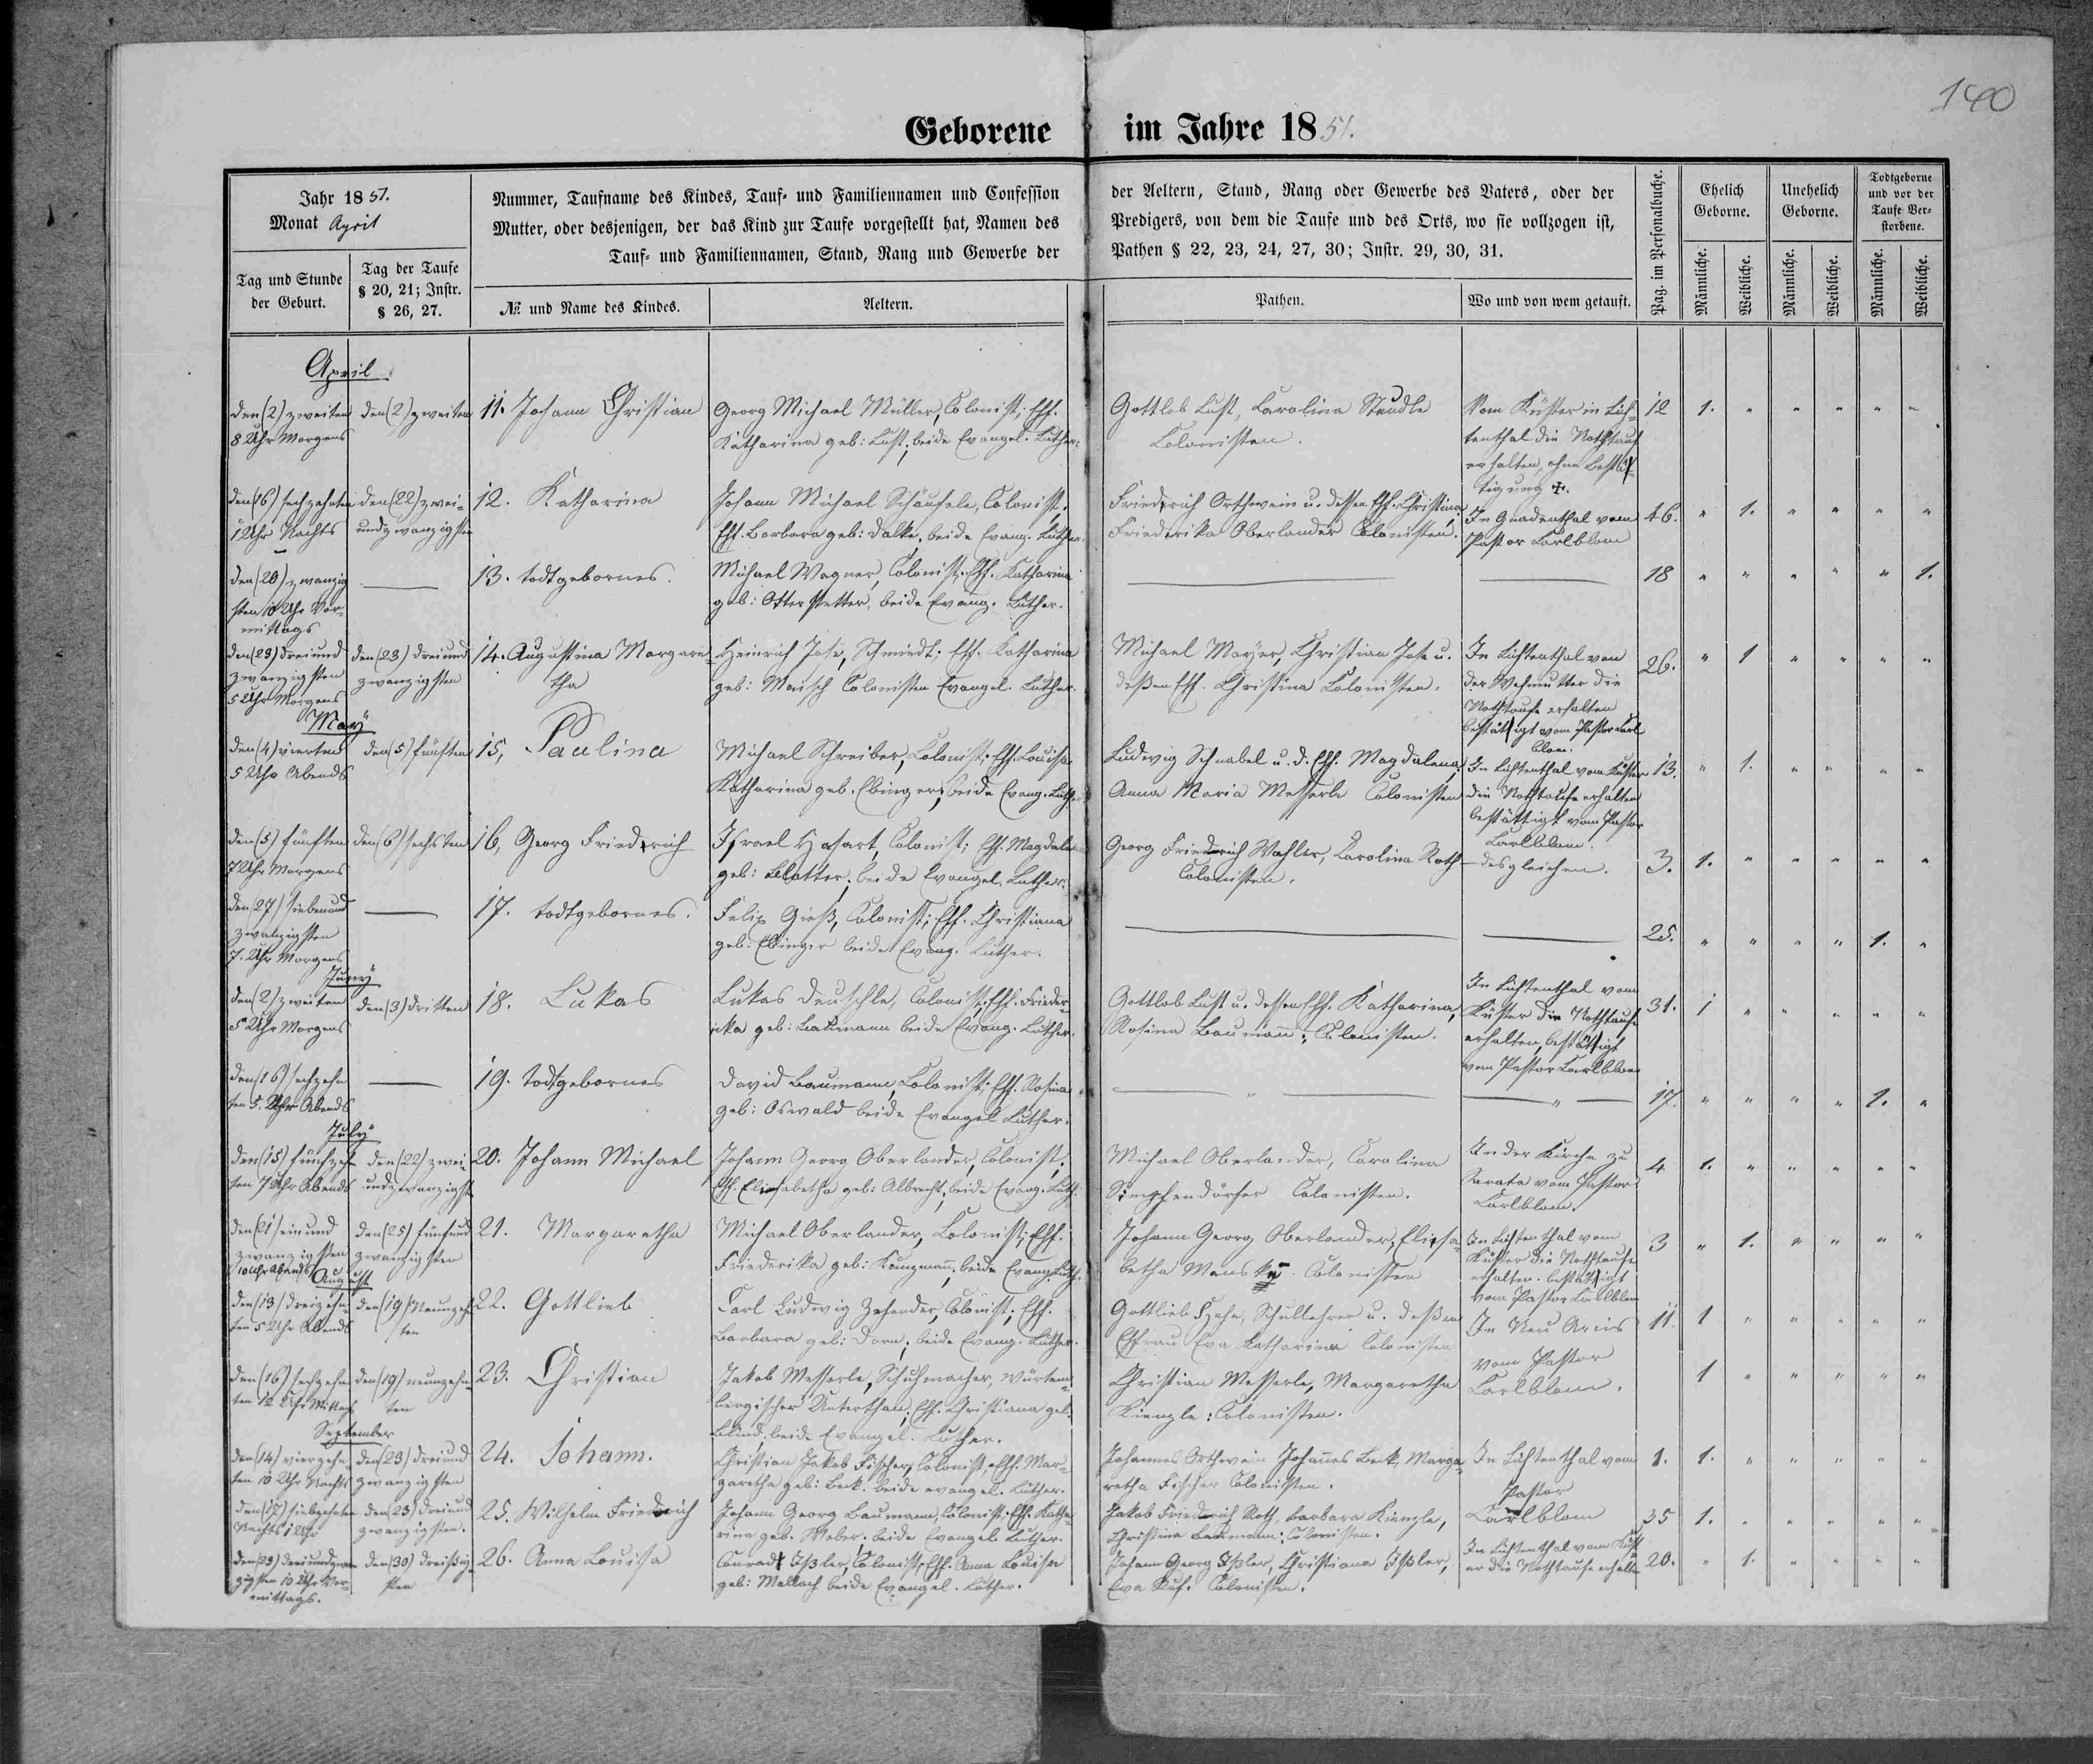 140
Geborene im Jahre 1851.
Jahr 1851.
Monat April
Nummer, Taufname des Kindes, Tauf- und Familiennamen und Confession
der Aeltern, Stand, Rang oder Gewerbe des Vaters, oder der
Mutter, oder desjenigen, der das Kind zur Taufe vorgestellt hat, Namen des
Predigers, von dem die Taufe und des Orts, wo sie vollzogen ist,
Tauf- und Familiennamen, Stand, Rang und Gewerbe der
Pathen § 22, 23, 24, 27, 30; Instr. 29, 30, 31.
Tag und Stunde
der Geburt.
Tag der Taufe
§ 20, 21; Instr.
§ 26, 27.
№ und Name des Kindes.
Aeltern.
Pathen.
Wo und von wem getauft.
Pag. im Personalbuche.
Ehelich
Geborne.
Unehelich
Geborne.
Todtgeborne
und vor der
Taufe Ver-
storbene.
Männliche.
Weibliche.
Männliche.
Weibliche.
Männliche.
Weibliche.
April
den (2) zweiten
8 Uhr Morgens
den (2) zweiten
11. Johann Christian
Georg Michael Müller, Colonist; Ehf.
Katharina geb: Lust, beide Evangel. Luther:
Gottlob Lust, Carolina Steudle
Colonisten.
Vom Küster in Lich-
tenthal die Nothtauf
erhalten, ohne Bestät-
tigung +.
12 1. " " " " "
den (16) sechzehnten
1 Uhr Nachts
den (22) zwei-
undzwanzigsten
12. Katharina
Johann Michael Schäufele, Colonist.
Ehf. Barbara geb: Dalke, beide Evang. Luther.
Friedrich Orthwein u. dessen Ehf. Christina,
Friederika Oberlander Colonisten.
In Gnadenthal vom
Pastor Carlblom
46. " 1. " " " "
den (20) zwanzig
sten 10 Uhr Vor-
mittags
13. todtgebornes.
Michael Wagner, Colonist. Ehf. Katharina
geb: Otterstetter, beide Evang. Luther.
18 " " " " " 1.
den (23) dreiund
zwanzigsten
5 Uhr Morgens
den (23) dreiund
zwanzigsten
14. Augustina Margare-
tha
Heinrich Jose, Schmiedt; Ehf. Katharina
geb: Mausch Colonisten Evangel. Luther.
Michael Mayer, Christian Jose u.
deßen Ehf. Christina Colonisten.
In Lichtenthal von
der Wehmutter die
Nothtaufe erhalten
bestättigt vom Pastor Carl
blom.
26. " 1 " " " "
May
den (4) vierten
5 Uhr Abends
den (5) fünften
15, Paulina
Michael Schreiber, Colonist; Ehf. Louisa
Katharina geb. Ebinger; beide Evang. Luth.
Ludwig Schnabel u. d. Ehf. Magdalena;
Anna Maria Messerle Colonisten
In Lichtenthal vom Küster
die Nothtaufe erhalten
bestättigt vom Pastor
Carlblom.
13. " 1. " " " "
den (5) fünften
7 Uhr Morgens
den (6) sechsten
16, Georg Friedrich
Israel Hasart, Colonist; Ehf. Magdalena
geb: Blatter, beide Evangel. Luther.
Georg Friedrich Wahler, Carolina Roth
Colonisten.
desgleichen.
3. 1. " " " " "
den (27) siebenund
zwanzigsten
7. Uhr Morgens
17. todtgebornes.
Felix Gieß, Colonist; Ehf. Christiana
geb: Ebinger beide Evang. Luther.
25. " " " " 1. "
Juny
den (2) zweiten
5 Uhr Morgens
den (3) dritten
18. Lukas
Lukas Deuschle, Colonist; Ehf. Frieder-
ika geb: Baumann beide Evang. Luther.
Gottlob Lust u. dessen Ehf. Katharina,
Rosina Baumann; Colonisten.
In Lichtenthal vom
Küster die Nothtaufe
erhalten, bestättigt
vom Pastor Carlblom
31. 1 " " " " "
den (16) sechzehn
ten 5. Uhr Abends
19. todtgebornes
David Baumann, Colonist; Ehf. Rosina
geb: Oswald beide Evangel Luther.
17. " " " " 1. "
July
den (15) fünfzehn
ten 7 Uhr Abends
den (22) zwei-
undzwanzigst
20. Johann Michael
Johann Georg Oberlander, Colonist;
Ehf. Elisabetha geb: Albrecht, beide Evang. Luth.
Michael Oberlander, Carolina
Simpfendörfer Colonisten.
In der Kirche zu
Sarata vom Pastor
Carlblom.
4 1. " " " " "
den (21) einund
zwanzigsten
10 Uhr Abends
den (25) fünfund
zwanzigsten
21. Margaretha
Michael Oberlander, Colonist; Ehf.
Friederika geb: Kunzmann, beide Evang. Luth.
Johann Georg Oberlander, Elisa-
betha Colonisten
In Lichtenthal vom
Küster die Nothtaufe
erhalten. bestättigt
vom Pastor Carlblom
3 " 1. " " " "
August
den (13) dreizehn
ten 5 Uhr Abends
den (19) Neunzehn
ten
22. Gottlieb
Carl Ludwig Zehender, Colonist; Ehf.
Barbara geb: Dorn, beide Evang. Luther.
Gottlieb Hahn, Schullehrer u. deßen
Ehfrau Eva Katharina Colonisten
In Neu Arcis
vom Pastor
Carlblom.
11. 1 " " " " "
den (16) sechzehn
ten 12 Uhr Mittags
den (19) neunzehn-
ten
23. Christian
Jakob Messerle, Schuhmacher, Würtem-
bergischer Unterthan, Ehf. Christiana geb.
Blind, beide Evangel. Luther.
Christian Messerle, Margaretha
Kienzle: Colonisten.
1 " " " " "
September
den (14) vierzehn
ten 10 Uhr Nachts
den (23) dreiund
zwanzigsten
24. Johann.
Christian Jakob Fischer, Colonist, Ehf. Mar-
garetha geb: Beck. beide evangel. Luther.
Johannes Orthwein Johannes Beck, Marga-
retha Fischer Colonisten.
In Lichtenthal vom
Pastor
Carlblom
1. 1. " " " " "
den (17) siebzehnten
Nachts 1 Uhr
den (23) dreiund
zwanzigsten.
25. Wilhelm Friedrich
Johann Georg Baumann, Colonist; Ehf. Katha-
rina geb. Weber. beide Evangel Luther.
Jakob Friedrich Roth, Barbara Kienzle,
Christina Baumann: Colonisten.
35 1. " " " " "
den (23) dreiundzwan
zigsten 10 Uhr Vor-
mittags.
den (30) dreißig-
sten
26. Anna Louisa
Conrad Ißler, Colonist; Ehf. Anna Louisa
geb: Mallach beide Evangel. Luther.
Johann Georg Ißler, Christiana Ißler,
Eva Ruf. Colonisten.
In Lichtenthal vom Küst
er die Nothtaufe erhalten
20. " 1. " " " "